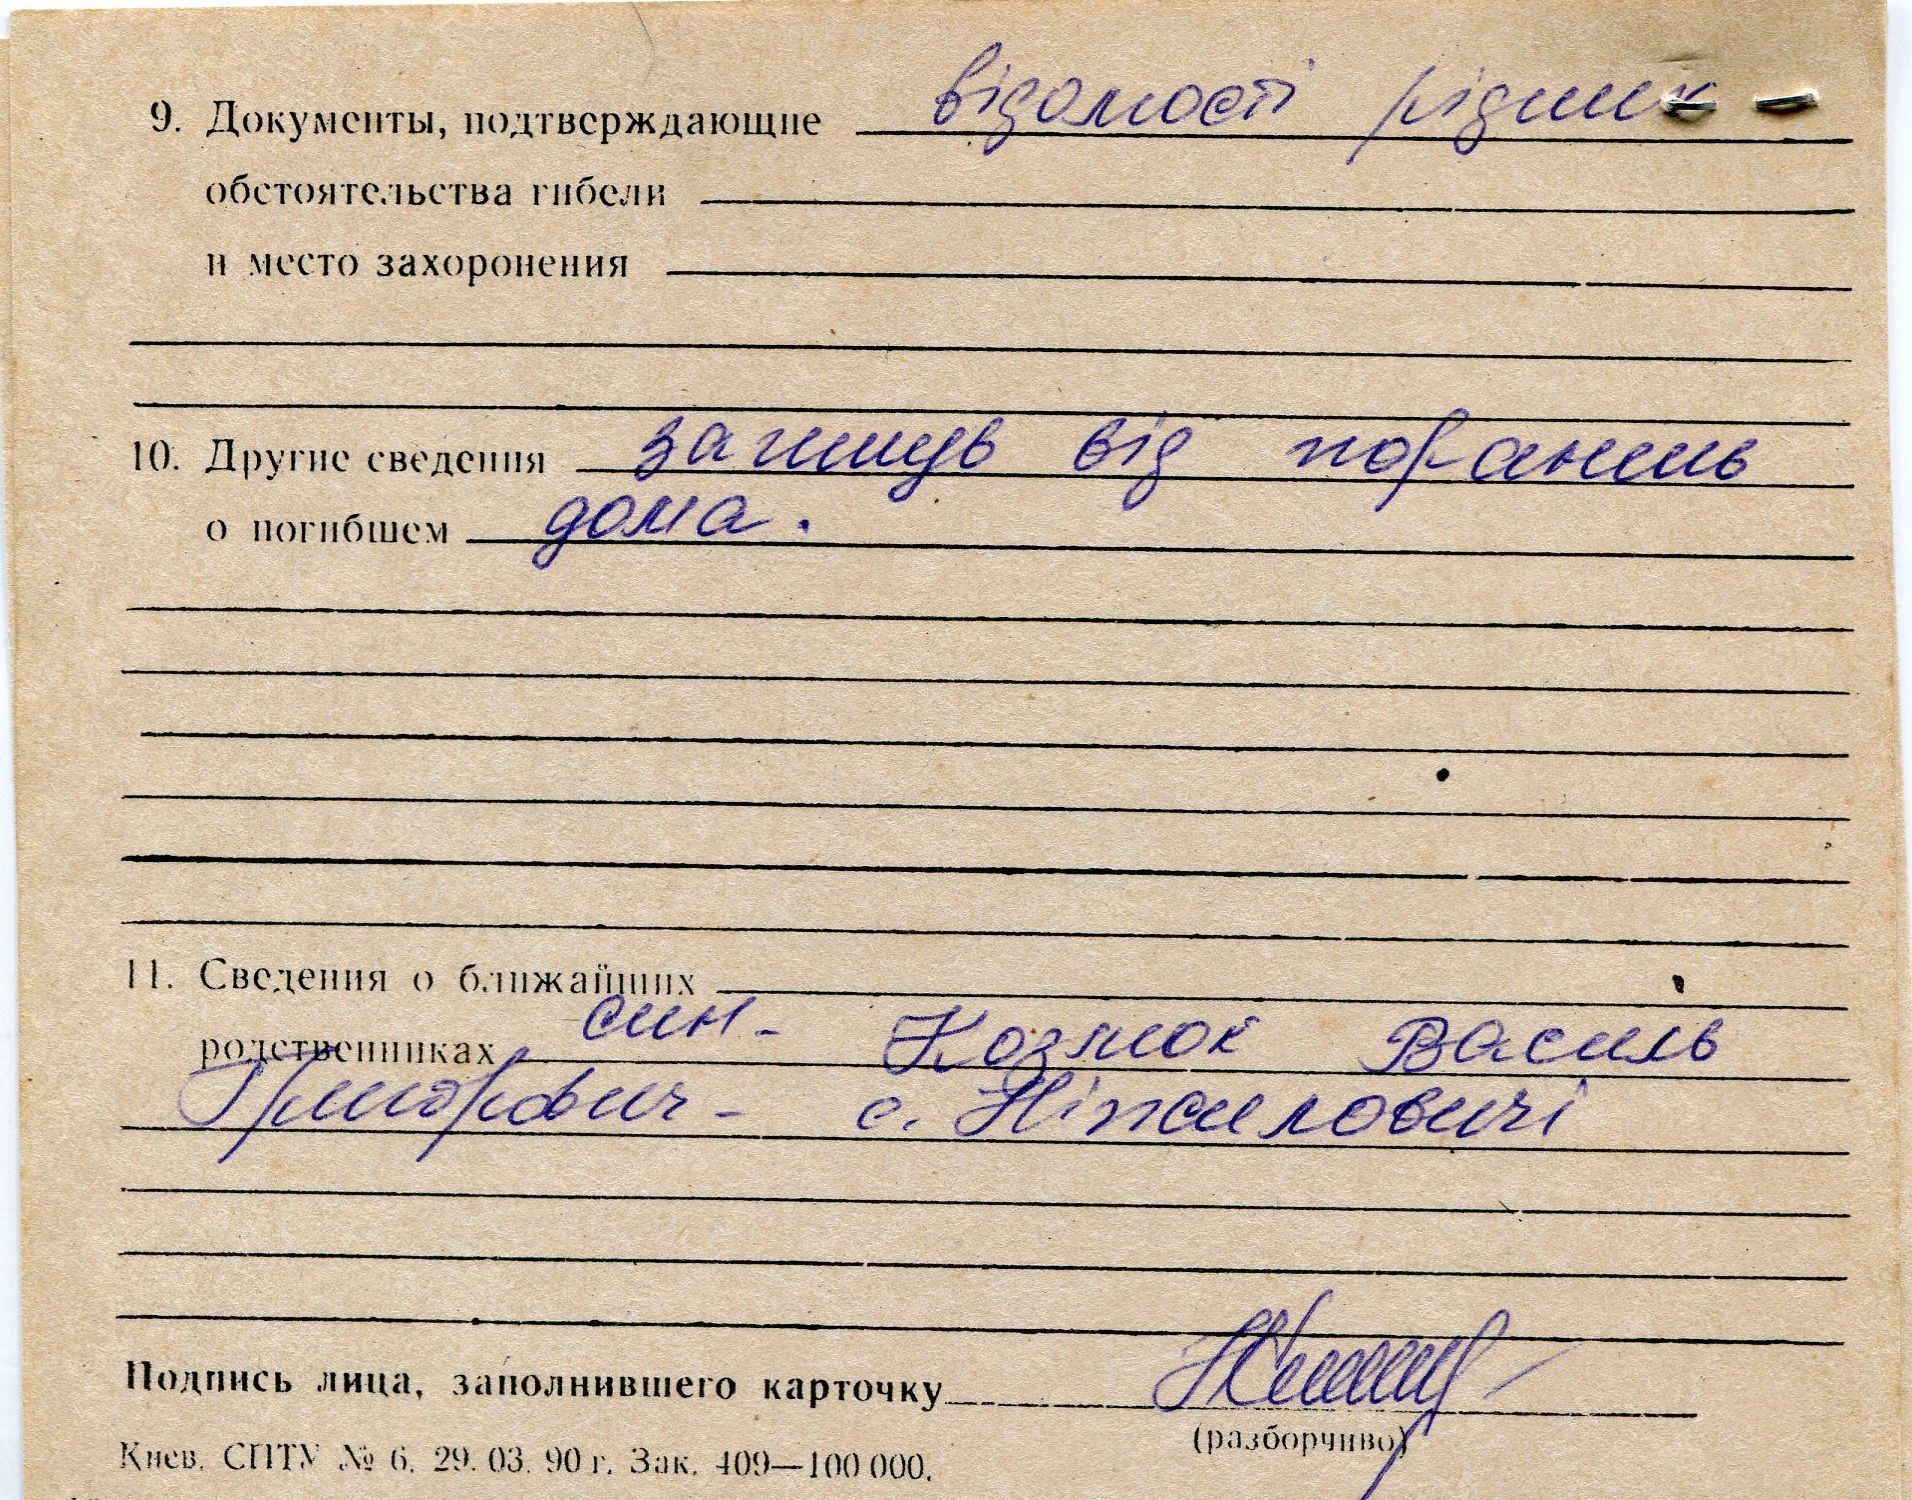 9. Документы, подтверждающие відомості рідних
обстоятельства гибели
и место захоронения
10. Другие сведения загинув від поранень
о погибшем дома.
11. Сведения о ближайших
родственниках син - Козлюк Василь
Григорович - с. Ніжиловичі
Подпись лица, заполнившего карточку
(разборчиво)
Киев. СПТУ № 6. 29. 03. 90 г. Зак. 409—100 000.